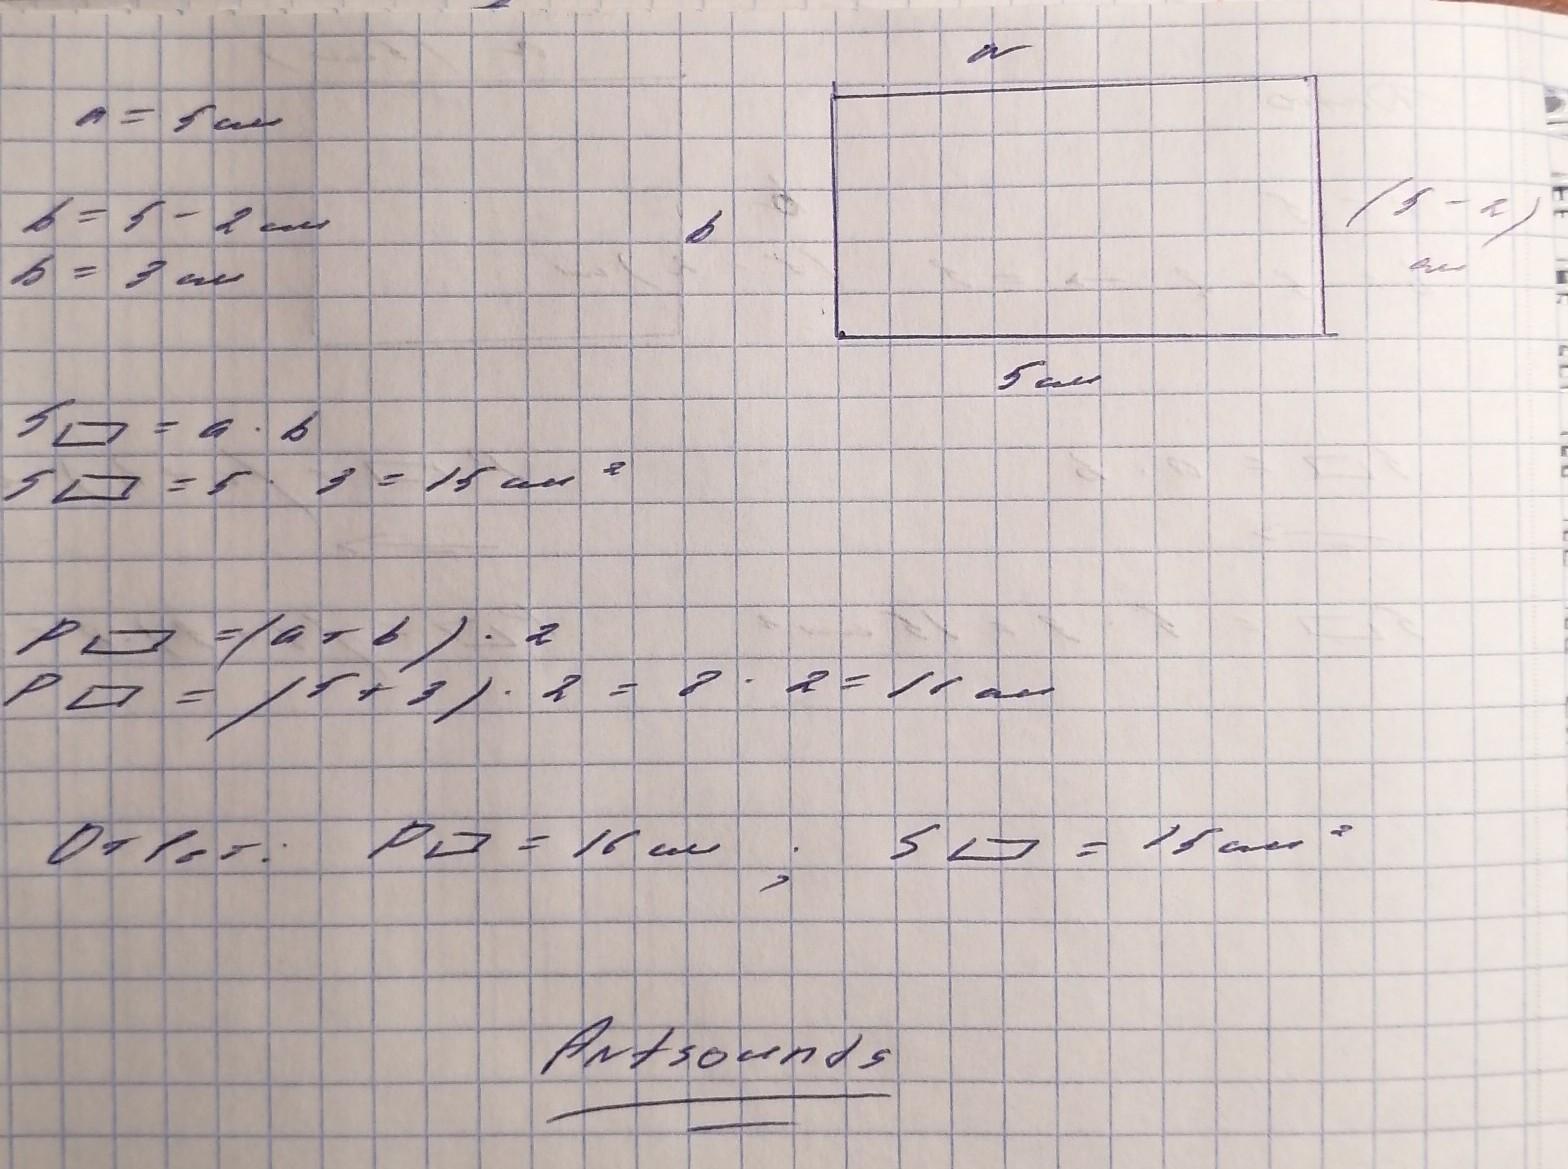 a
a = 5 см
b = 5 - 2 см
b
(5 - 2)
см
b = 3 см
5 см
S▭ = a · b
S▭ = 5 · 3 = 15 см²
P▭ = (a + b) · 2
P▭ = (5 + 3) · 2 = 8 · 2 = 16 см
Ответ: P▭ = 16 см ; S▭ = 15 см²
Artsounds